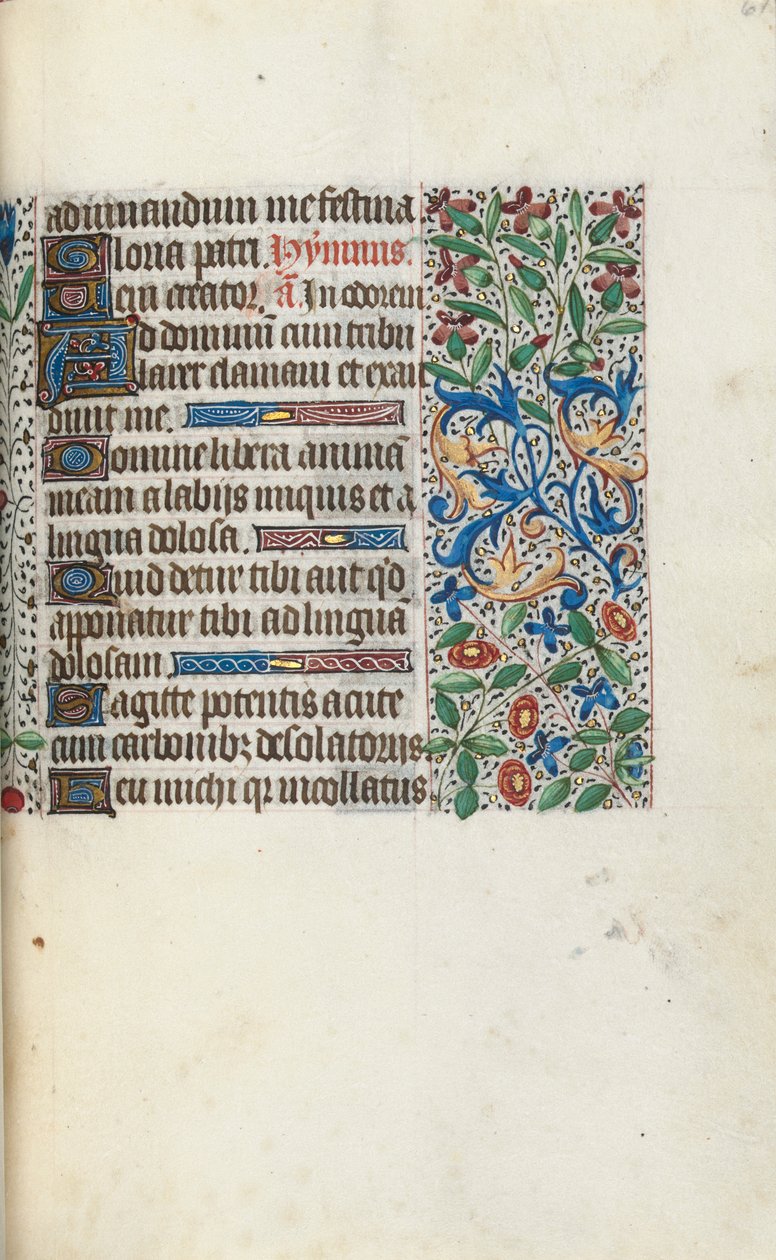 61
adiuuandum me festina
Gloria patri. Hymnus.
Ueni creator. ā. In odorem
Ad dominū cum tribu
larer clamaui et exau
diuit me.
Domine libera animā
meam a labijs iniquis et a
lingua dolosa.
Quid detur tibi aut qͥd
apponatur tibi ad linguā
dolosam.
Sagitte potentis acute
cum carbonibꝫ desolatorijs.
Heu michi qr incollatus